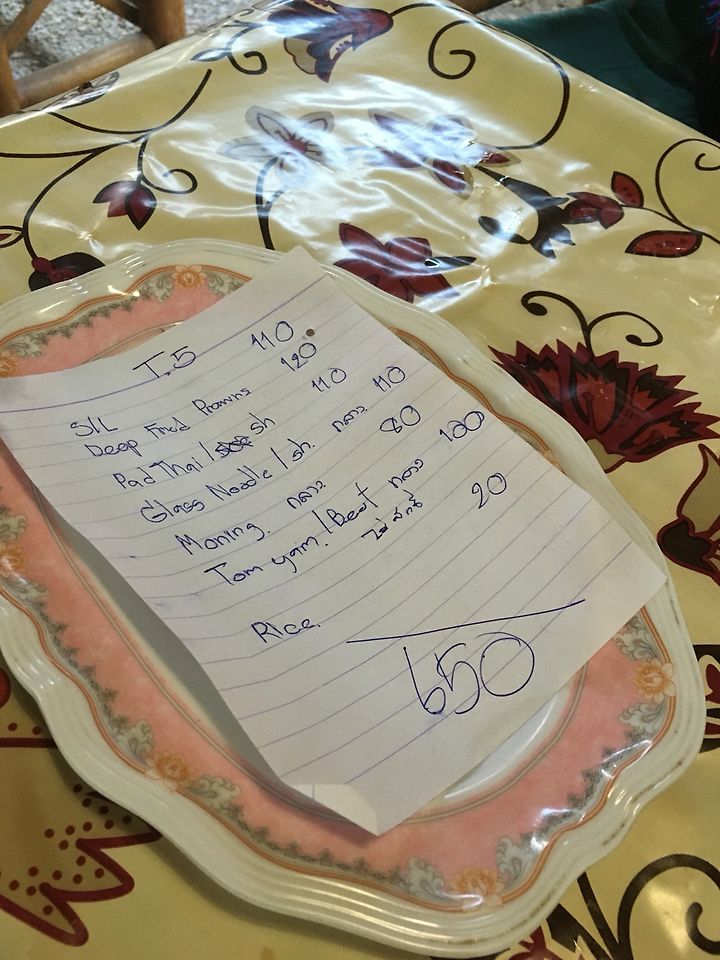 T.5
S/L 110
Deep Fried Prawns 120
Pad Thai / sh 110
Glass Noodle / sh. กลาง 110
Moning. กลาง 80
Tom yam. / Beat กลาง 100
Rice. 20
650